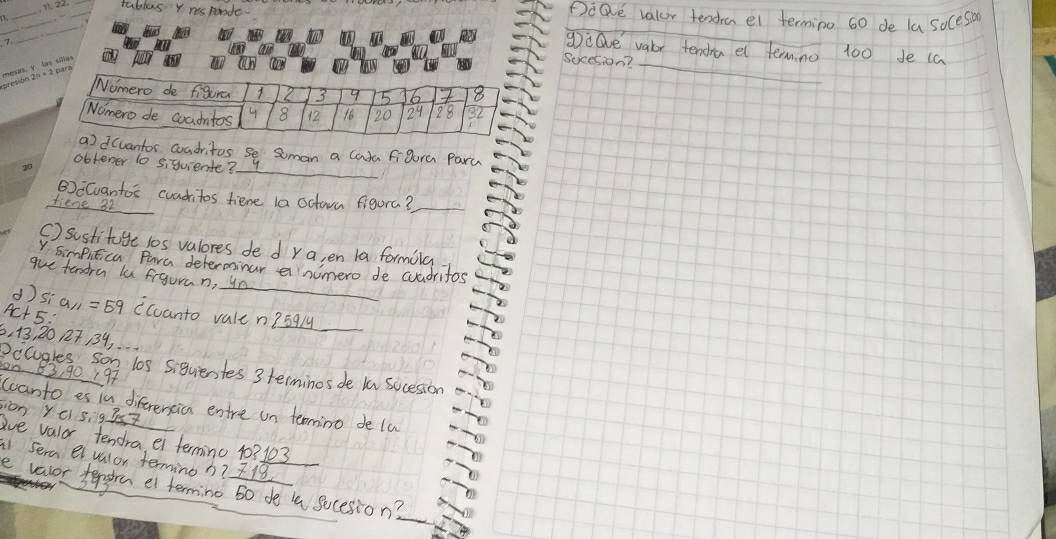 n, 22
7.
mesas, y las sillas
expresión 2n + 2 para
20
tablas y responde.
Número de figura 1 2 3 4 5 6 7 8
Número de cuadritos 4 8 12 16 20 24 28 32
a) ¿Cuantos cuadritos se suman a cada figura para
obtener lo siguiente? 4
B) ¿Cuantos cuadritos tiene la octava figura?
tiene 32
C) sustituye los valores de d y a, en la formúla
y simplifica para determinar el número de cuadritos
que tendra la figura n, 4n
d) si a₁₁ = 59 ¿cuanto vale n? 59/4
Act 5:
6, 13, 20, 27, 34, ...
¿Cuales son los siguientes 3 terminos de la sucesion
son 83, 90, 97
Cuanto es la diferencia entre un termino de la
sion y el sig? es 7
Que valor tendra el termino 10? 103
al sera el valor termino n? 718
e valor tendra el termino 50 de la sucesion?
343
F) ¿Qué valor tendra el termino 60 de la sucesion
g) ¿Que valor tendra el termino 100 de la
sucesion?